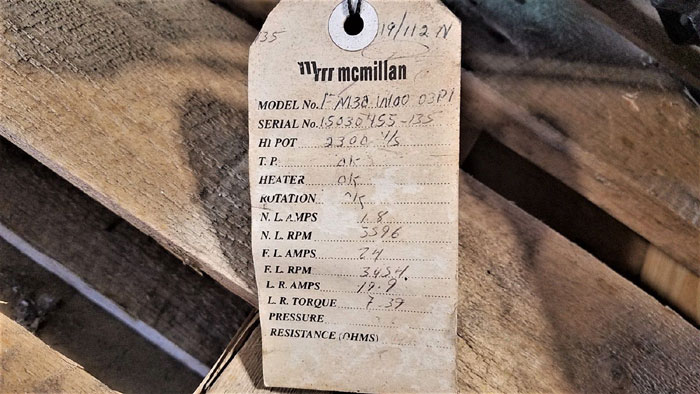 135 19/112 N
mcmillan
MODEL No. FM30 1N00 03P1
SERIAL No. 15030455-135
HI POT 2300 1/s
T.P. OK
HEATER OK
ROTATION OK
N. L. AMPS 1.8
N. L. RPM 3596
F. L. AMPS 24
F. L. RPM 3454
L. R. AMPS 19.9
L. R. TORQUE 7.39
PRESSURE
RESISTANCE (OHMS)